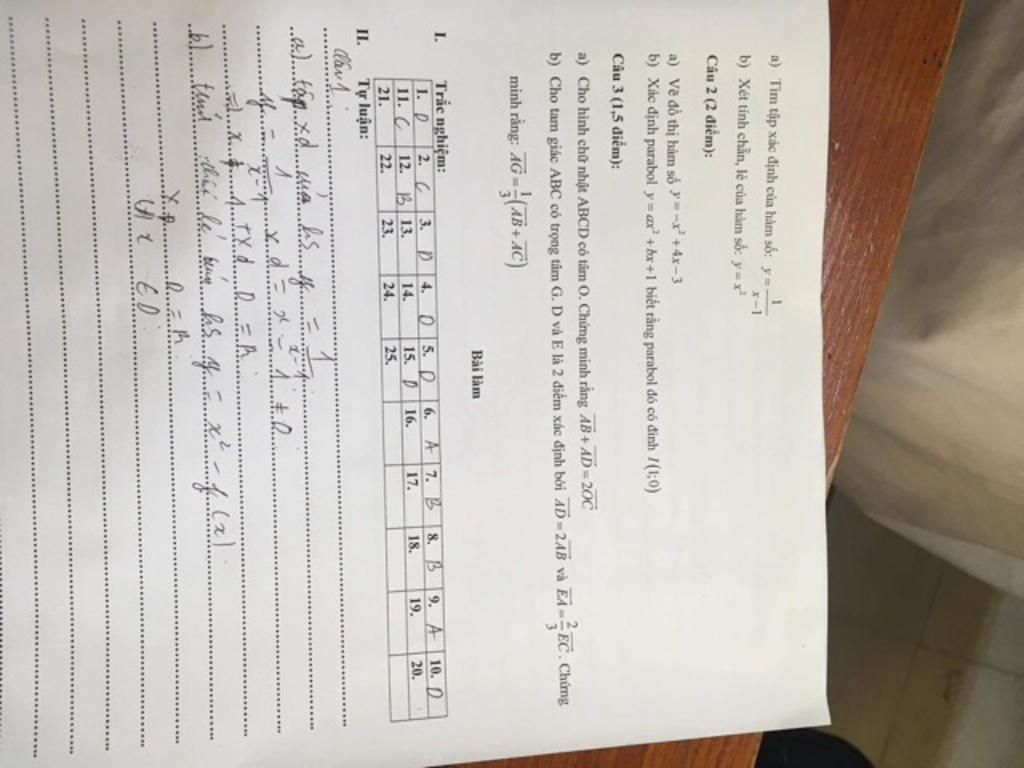 a) Tìm tập xác định của hàm số: y = 1/(x−1)
b) Xét tính chẵn, lẻ của hàm số: y = x²
Câu 2 (2 điểm):
a) Vẽ đồ thị hàm số y = −x² + 4x − 3
b) Xác định parabol y = ax² + bx + 1 biết rằng parabol đó có đỉnh I(1;0)
Câu 3 (1,5 điểm):
a) Cho hình chữ nhật ABCD có tâm O. Chứng minh rằng AB + AD = 2OC
b) Cho tam giác ABC có trọng tâm G. D và E là 2 điểm xác định bởi AD = 2AB và EA = 2/3 EC. Chứng
minh rằng: AG = 1/3(AB + AC)
Bài làm
I. Trắc nghiệm:
1. D 2. C 3. D 4. D 5. D 6. A 7. B 8. B 9. A 10. D
11. C 12. B 13. 14. 15. D 16. 17. 18. 19. 20.
21. 22. 23. 24. 25.
II. Tự luận:
Câu 1:
a) tập xd của hs y = 1/(x−1)
y = 1/(x−1) x d = x − 1 ≠ 0
=> x ≠ 1 TXd D = R
b) tính lẻ của hs y = x² − f(x)
D = R
x ∈ D